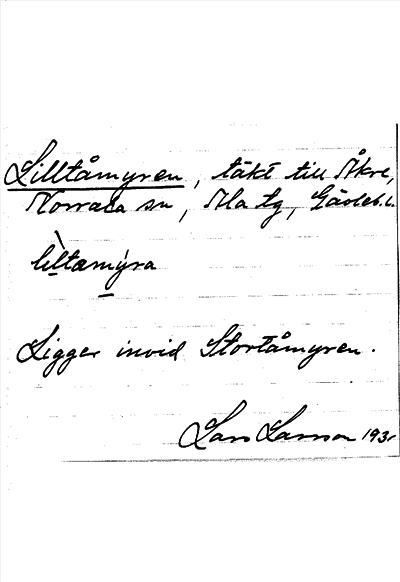 Lilltåmyren, täkt till Åkre,
Norrala sn, Ala tg, Gävleb. l.
lìltæmýra
Ligger invid Stortåmyren.
Lars Larsson 193